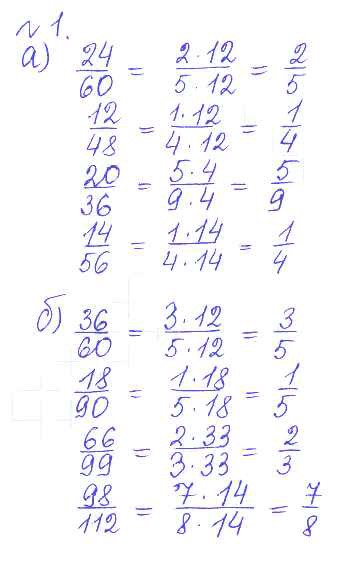 № 1.
а) 24/60 = 2·12/5·12 = 2/5
12/48 = 1·12/4·12 = 1/4
20/36 = 5·4/9·4 = 5/9
14/56 = 1·14/4·14 = 1/4
б) 36/60 = 3·12/5·12 = 3/5
18/90 = 1·18/5·18 = 1/5
66/99 = 2·33/3·33 = 2/3
98/112 = 7·14/8·14 = 7/8